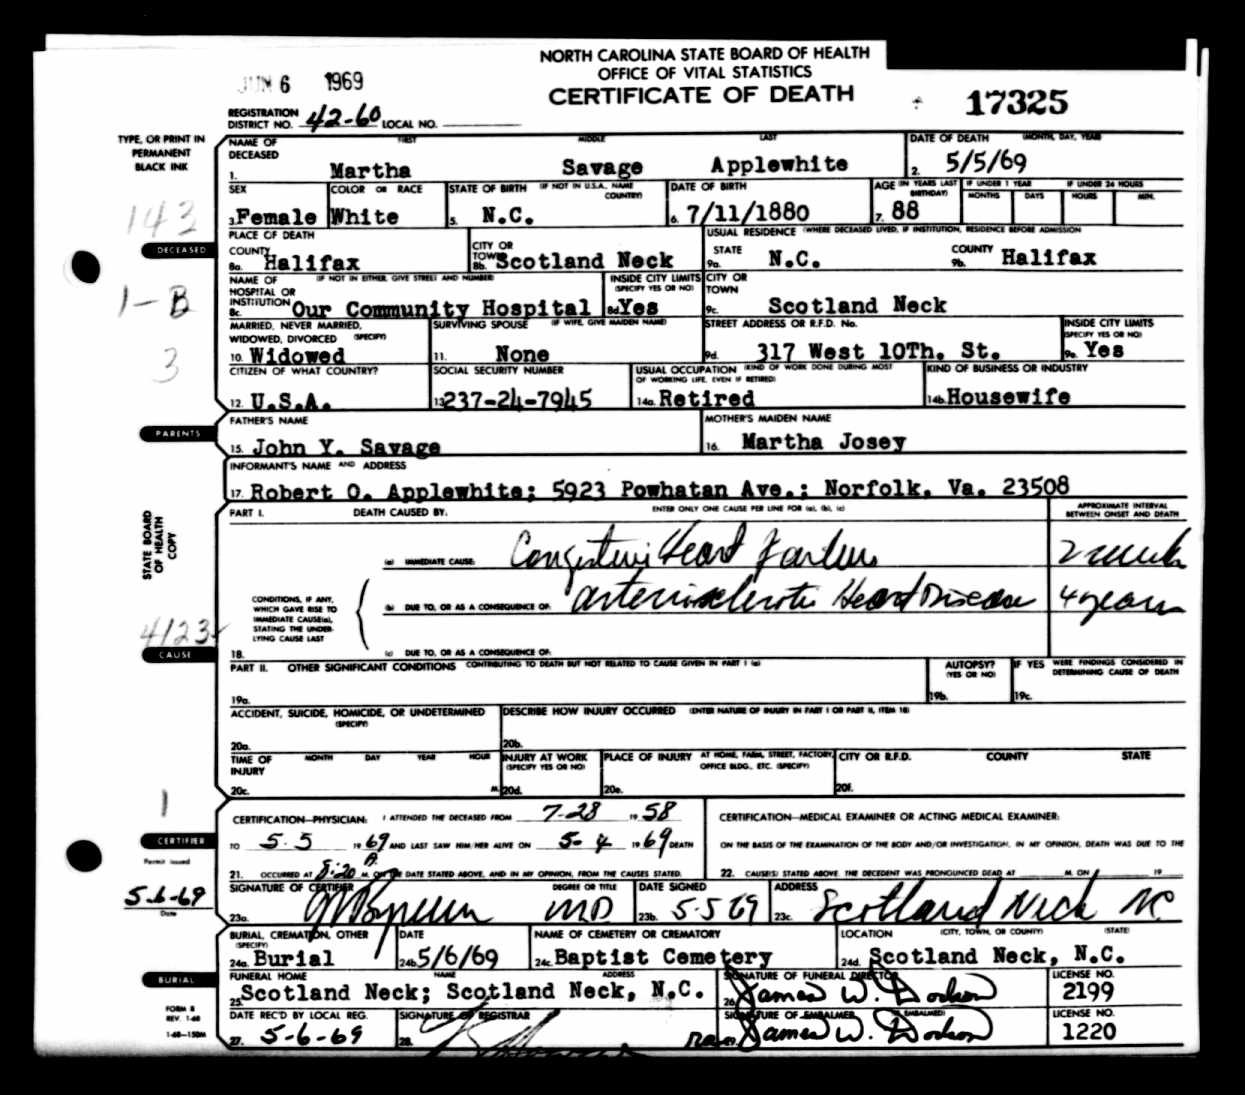 NORTH CAROLINA STATE BOARD OF HEALTH
OFFICE OF VITAL STATISTICS
CERTIFICATE OF DEATH
JUN 6 1969
17325
REGISTRATION DISTRICT NO. 42-60 LOCAL NO.
TYPE, OR PRINT IN PERMANENT BLACK INK
NAME OF DECEASED FIRST MIDDLE LAST DATE OF DEATH (MONTH, DAY, YEAR)
1. Martha Savage Applewhite 2. 5/5/69
143
SEX COLOR OR RACE STATE OF BIRTH (IF NOT IN U.S.A., NAME COUNTRY) DATE OF BIRTH AGE (IN YEARS LAST BIRTHDAY) IF UNDER 1 YEAR IF UNDER 24 HOURS
MONTHS DAYS HOURS MIN.
3. Female White 5. N.C. 6. 7/11/1880 7. 88
DECEASED
PLACE OF DEATH USUAL RESIDENCE (WHERE DECEASED LIVED, IF INSTITUTION, RESIDENCE BEFORE ADMISSION
COUNTY 8a. Halifax CITY OR TOWN 8b. Scotland Neck STATE 9a. N.C. COUNTY 9b. Halifax
NAME OF HOSPITAL OR INSTITUTION (IF NOT IN EITHER, GIVE STREET AND NUMBER) INSIDE CITY LIMITS (SPECIFY YES OR NO) CITY OR TOWN
1-B
8c. Our Community Hospital 8d. Yes 9c. Scotland Neck
MARRIED, NEVER MARRIED, WIDOWED, DIVORCED (SPECIFY) SURVIVING SPOUSE (IF WIFE, GIVE MAIDEN NAME) STREET ADDRESS OR R.F.D. No. INSIDE CITY LIMITS (SPECIFY YES OR NO)
10. Widowed 11. None 9d. 317 West 10Th. St. 9e. Yes
3
CITIZEN OF WHAT COUNTRY? SOCIAL SECURITY NUMBER USUAL OCCUPATION (KIND OF WORK DONE DURING MOST OF WORKING LIFE, EVEN IF RETIRED) KIND OF BUSINESS OR INDUSTRY
12. U.S.A. 13. 237-24-7945 14a. Retired 14b. Housewife
PARENTS
FATHER'S NAME MOTHER'S MAIDEN NAME
15. John Y. Savage 16. Martha Josey
INFORMANT'S NAME AND ADDRESS
17. Robert O. Applewhite; 5923 Powhatan Ave.; Norfolk, Va. 23508
STATE BOARD OF HEALTH COPY
PART I. DEATH CAUSED BY: ENTER ONLY ONE CAUSE PER LINE FOR (a), (b), (c) APPROXIMATE INTERVAL BETWEEN ONSET AND DEATH
(a) IMMEDIATE CAUSE: Congestive Heart Failure 2 weeks
CONDITIONS, IF ANY, WHICH GAVE RISE TO IMMEDIATE CAUSE(a), STATING THE UNDERLYING CAUSE LAST
(b) DUE TO, OR AS A CONSEQUENCE OF: arteriosclerotic Heart Disease 4 years
4123
CAUSE
18. (c) DUE TO, OR AS A CONSEQUENCE OF:
PART II. OTHER SIGNIFICANT CONDITIONS CONTRIBUTING TO DEATH BUT NOT RELATED TO CAUSE GIVEN IN PART I (a) AUTOPSY? (YES OR NO) IF YES WERE FINDINGS CONSIDERED IN DETERMINING CAUSE OF DEATH
19a. 19b. 19c.
ACCIDENT, SUICIDE, HOMICIDE, OR UNDETERMINED (SPECIFY) DESCRIBE HOW INJURY OCCURRED (ENTER NATURE OF INJURY IN PART I OR PART II, ITEM 18)
20a. 20b.
TIME OF INJURY MONTH DAY YEAR HOUR INJURY AT WORK (SPECIFY YES OR NO) PLACE OF INJURY AT HOME, FARM, STREET, FACTORY, OFFICE BLDG., ETC. (SPECIFY) CITY OR R.F.D. COUNTY STATE
20c. M. 20d. 20e. 20f.
1
CERTIFICATION—PHYSICIAN: I ATTENDED THE DECEASED FROM 7-28 19 58 CERTIFICATION—MEDICAL EXAMINER OR ACTING MEDICAL EXAMINER:
CERTIFIER
TO 5-5 19 69 AND LAST SAW HIM/HER ALIVE ON 5-4 19 69 DEATH ON THE BASIS OF THE EXAMINATION OF THE BODY AND/OR INVESTIGATION, IN MY OPINION, DEATH WAS DUE TO THE
21. OCCURRED AT 8:20 A. M. ON THE DATE STATED ABOVE, AND IN MY OPINION, FROM THE CAUSES STATED. 22. CAUSE(S) STATED ABOVE. THE DECEDENT WAS PRONOUNCED DEAD AT M. ON 19
Permit issued
5-6-69
Date
SIGNATURE OF CERTIFIER DEGREE OR TITLE DATE SIGNED ADDRESS
23a. MD 23b. 5-5 69 23c. Scotland Neck NC
BURIAL, CREMATION, OTHER (SPECIFY) DATE NAME OF CEMETERY OR CREMATORY LOCATION (CITY, TOWN, OR COUNTY) (STATE)
24a. Burial 24b. 5/6/69 24c. Baptist Cemetery 24d. Scotland Neck, N.C.
BURIAL
FUNERAL HOME NAME ADDRESS SIGNATURE OF FUNERAL DIRECTOR LICENSE NO.
25. Scotland Neck; Scotland Neck, N.C. 26. James W. Dodson 2199
FORM 8
REV. 1-68
1-68—150M
DATE REC'D BY LOCAL REG. SIGNATURE OF REGISTRAR SIGNATURE OF EMBALMER (IF EMBALMED) LICENSE NO.
27. 5-6-69 28. 29. James W. Dodson 1220